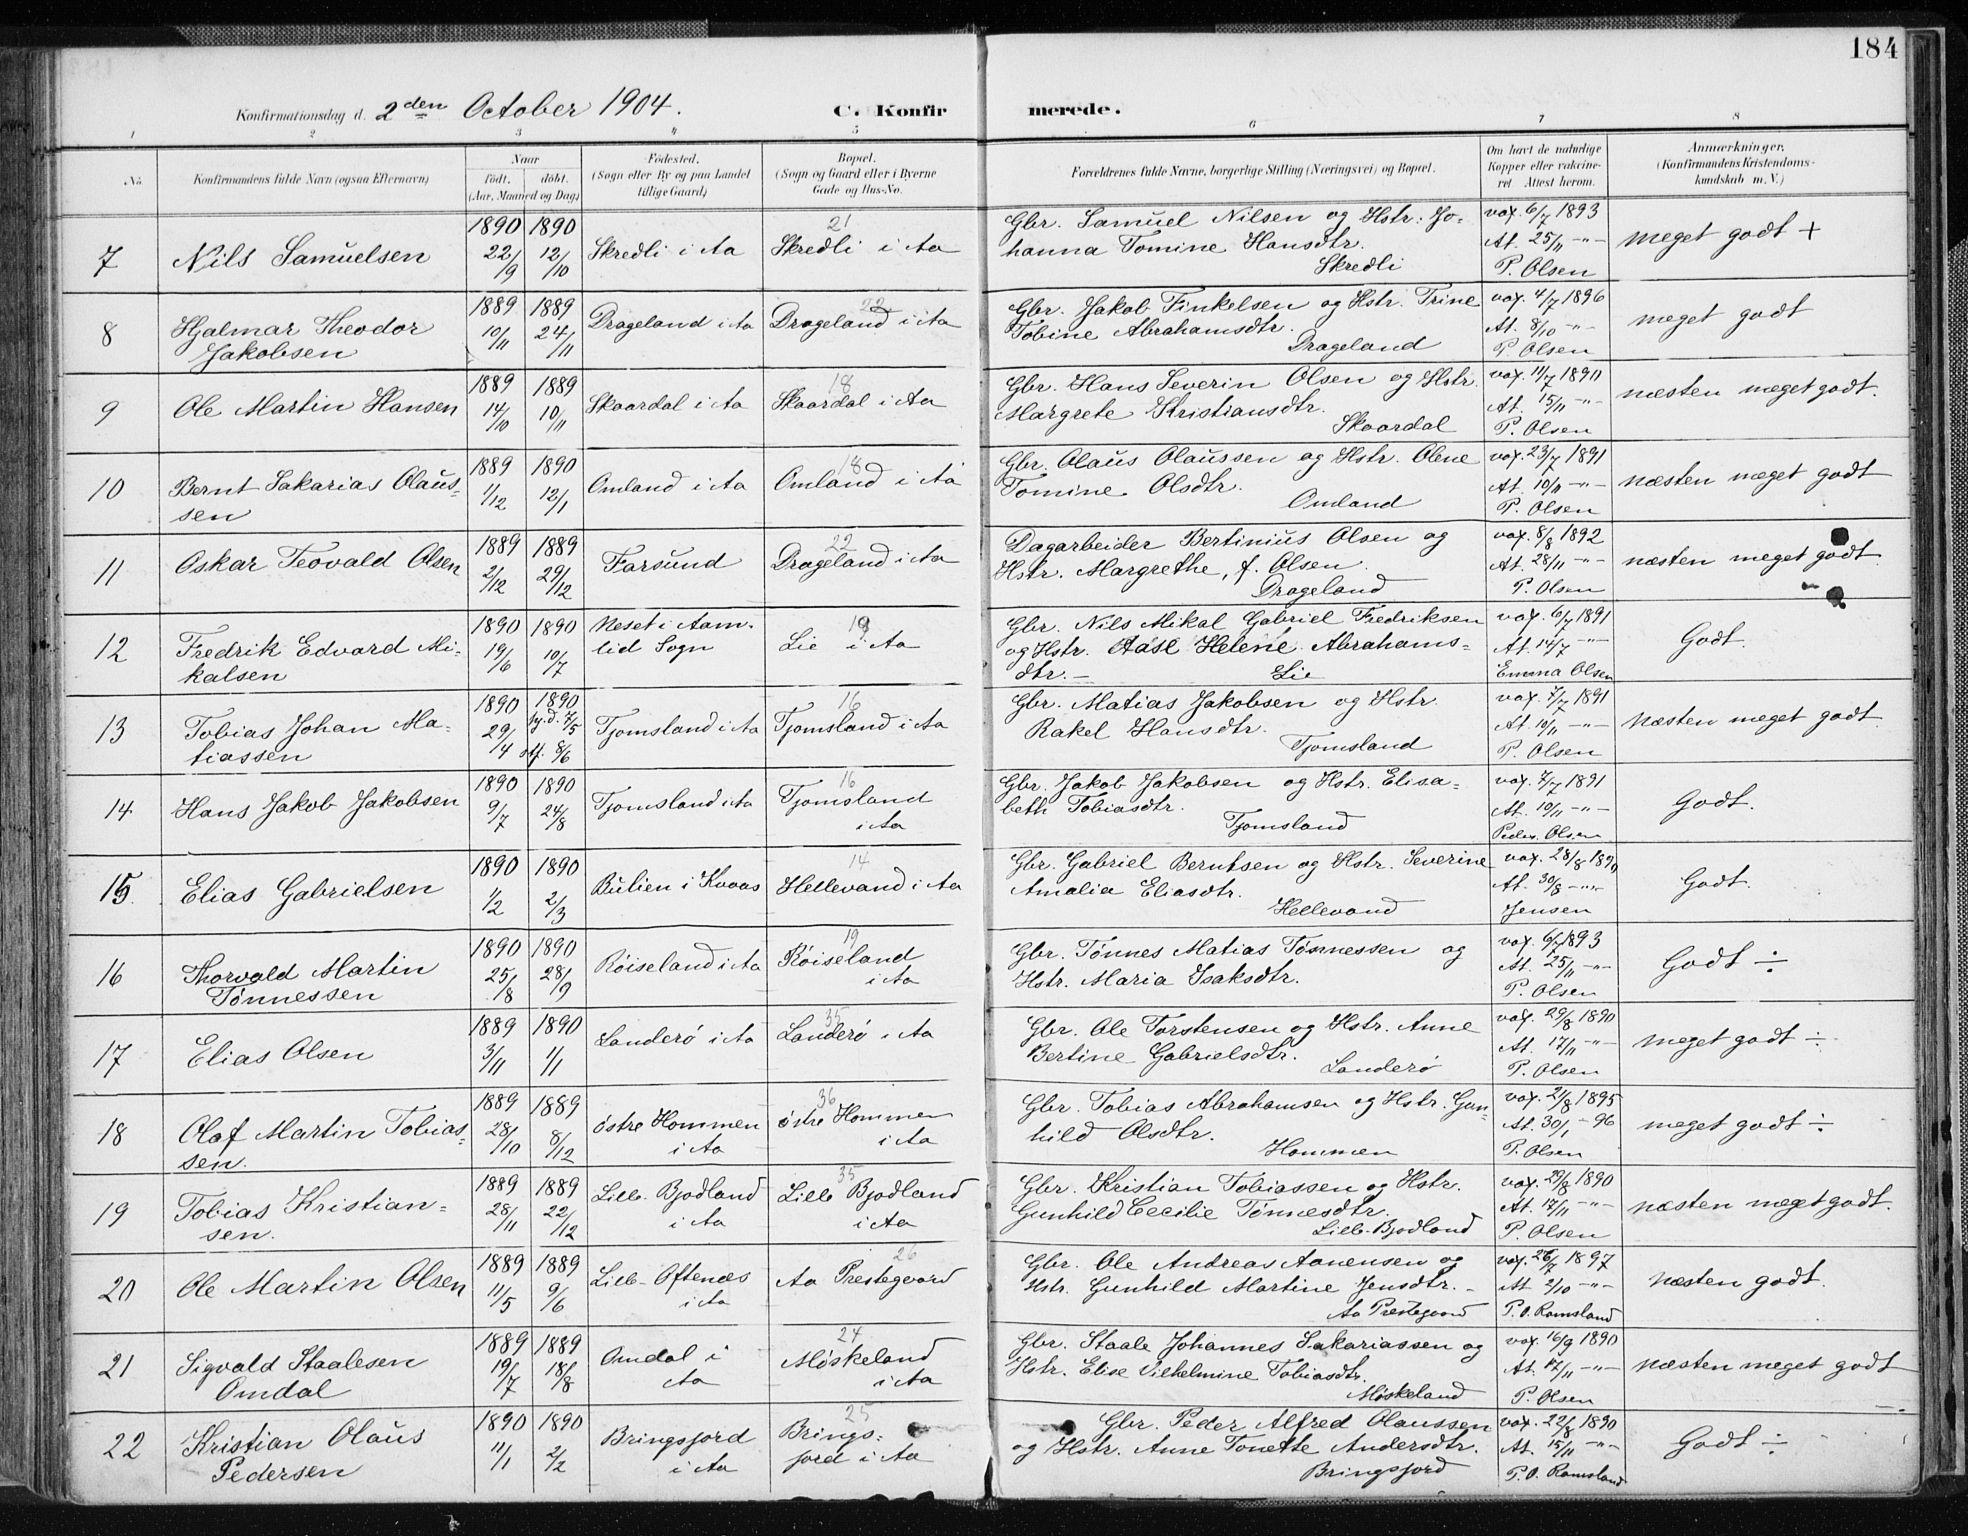 184
Konfirmationsdag d. 2den October 1904. C. Konfirmerede.
1 2 3 4 5 6 7 8
No. Konfirmandens fulde Navn (ogsaa Efternavn) Naar født. døbt. (Aar, Maaned og Dag) Fødested. (Sogn eller By og paa Landet tillige Gaard) Bopæl. (Sogn og Gaard eller i Byerne Gade og Hus-No. Forældrenes fulde Navne, borgerlige Stilling (Næringsvei) og Bopæl. Om havt de naturlige Kopper eller vakcineret. Attest herom. Anmærkninger. (Konfirmandens Kristendomskundskab m. V.)
7 Nils Samuelsen 1890 22/9 1890 12/10 Skredli i Aa 21 Skredli i Aa Gbr. Samuel Nilsen og Hstr. Johanna Tomine Hansdtr. Skredli vax. 6/7 1893 At. 25/11 -"- P. Olsen meget godt +
8 Hjalmar Theodor Jakobsen 1889 10/11 1889 24/11 Drageland i Aa 22 Drageland i Aa Gbr. Jakob Finkelsen og Hstr. Trine Tobine Abrahamsdtr. Drageland vax. 4/7 1896 At. 8/10 -"- P. Olsen meget godt
9 Ole Martin Hansen 1889 14/10 1889 10/11 Skaardal i Aa 18 Skaardal i Aa Gbr. Hans Severin Olsen og Hstr. Margrete Kristiansdtr. Skaardal vax. 11/7 1890 At. 15/11 -"- P. Olsen næsten meget godt.
10 Bernt Sakarias Olaussen 1889 1/12 1890 12/1 Omland i Aa 18 Omland i Aa Gbr. Olaus Olaussen og Hstr. Olene Tomine Olsdtr. Omland vax. 23/7 1891 At. 10/11 -"- P. Olsen næsten meget godt
11 Oskar Teovald Olsen 1889 2/12 1889 29/12 Farsund 22 Drageland i Aa Dagarbeider Bertinius Olsen og Hstr. Margrethe, f. Olsen. Drageland vax. 8/8 1892 At. 28/11 -"- P. Olsen næsten meget godt
12 Fredrik Edvard Mikalsen 1890 19/6 1890 10/7 Neset i Aamlid Sogn Lie i Aa Gbr. Nils Mikal Gabriel Fredriksen og Hstr. Aase Helene Abrahamsdtr. - Lie vax. 6/7 1891 At. 14/7 -"- Emma Olsen Godt.
13 Tobias Johan Matiassen 1890 29/4 1890 hj.d. 7/5 stf. 8/6 Tjomsland i Aa 16 Tjomsland i Aa Gbr. Matias Jakobsen og Hstr. Rakel Hansdtr. Tjomsland vax. 7/7 1891 At. 10/11 -"- P. Olsen næsten meget godt.
14 Hans Jakob Jakobsen 1890 9/7 1890 24/8 Tjomsland i Aa 16 Tjomsland i Aa Gbr. Jakob Jakobsen og Hstr. Elisabeth Tobiasdtr. Tjomsland vax. 7/7 1891 At. 10/11 -"- Peder Olsen Godt.
15 Elias Gabrielsen 1890 1/2 1890 2/3 Bulien i Kvaas 14 Hellevand i Aa Gbr. Gabriel Berntsen og Hstr. Severine Amalia Eliasdtr. Hellevand vax. 28/8 1890 At. 30/8 -"- Jensen Godt.
16 Thorvald Martin Tønnessen 1890 25/8 1890 28/9 Røiseland i Aa 19 Røiseland i Aa Gbr. Tønnes Matias Tønnessen og Hstr. Maria Isaksdtr. vax. 6/7 1893 At. 25/11 -"- P. Olsen Godt ÷
17 Elias Olsen 1889 3/11 1890 1/1 Landerø i Aa 35 Landerø i Aa Gbr. Ole Torstensen og Hstr. Anne Bertine Gabrielsdtr. Landerø vax. 29/8 1890 At. 17/11 -"- P. Olsen meget godt ÷
18 Olaf Martin Tobiassen. 1889 28/10 1889 8/12 østre Hommen i Aa 36 østre Hommen i Aa Gbr. Tobias Abrahamsen og Hstr. Gunhild Olsdtr. Hommen vax. 2/8 1895 At. 30/1 - 96 P. Olsen meget godt ÷
19 Tobias Kristiansen. 1889 28/11 1889 22/12 Lille Bjodland i Aa 35 Lille Bjodland i Aa Gbr. Kristian Tobiassen og Hstr. Gunhild Cecilie Tønnesdtr. Lille-Bjodland vax. 29/8 1890 At. 17/11 -"- P. Olsen næsten meget godt.
20 Ole Martin Olsen 1889 11/5 1889 9/6 Lille-Oftenæs i Aa 26 Aa Prestegaard Gbr. Ole Andreas Aanensen og Hstr. Gunhild Martine Jensdtr. - Aa Prestegaard vax. 26/7 1897 At 2/10 -"- P.O. Ramsland næsten godt.
21 Sigvald Staalesen Omdal 1889 19/7 1889 18/8 Omdal i Aa 24 Møskeland i Aa Gbr. Staale Johannes Sakariassen og Hstr. Elise Vilhelmine Tobiasdtr. Møskeland vax. 16/9 1890 At. 17/11 -"- P. Olsen næsten meget godt
22 Kristian Olaus Pedersen 1890 11/1 1890 2/2 Bringsjord i Aa 25 Bringsjord i Aa Gbr. Peder Alfred Olaussen og Hstr. Anne Tonette Andersdtr. Bringsjord vax. 22/8 1890 At. 15/11 -"- P.O. Ramsland Godt ÷